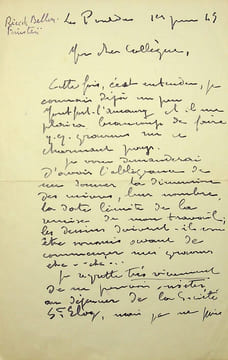 Les 1er juin 49
Mon cher Collègue,
Cette fois, c'est entendu, je
connais déjà un peu
Montfort-l'Amaury et il me
plaira beaucoup de faire
q.q. gravures sur ce
charmant pays.
Je vous demanderai
d'avoir l'obligeance de
me donner la dimension
des gravures, leur nombre,
la date limite de la
remise de mon travail;
les dessins doivent-ils
être soumis avant de
commencer mes gravures
etc-etc...
Je regrette très vivement
de ne pouvoir assister
au déjeuner de la Société
St Eloy, mais je ne puis